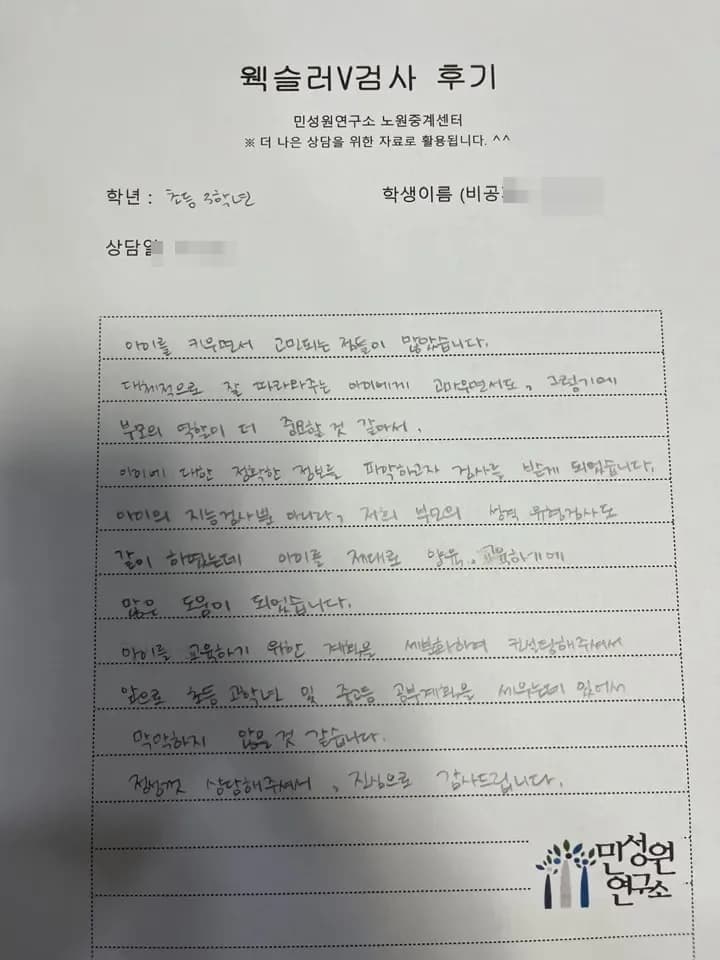 웩슬러V검사 후기
민성원연구소 노원중계센터
※ 더 나은 상담을 위한 자료로 활용됩니다. ^^
학년 : 초등 3학년
학생이름 (비공
상담일
아이를 키우면서 고민되는 점들이 많았습니다.
대체적으로 잘 따라와주는 아이에게 고마우면서도, 그렇기에
부모의 역할이 더 중요할 것 같아서,
아이에 대한 정확한 정보를 파악하고자 검사를 받게 되었습니다.
아이의 지능검사뿐 아니라, 저희 부모의 성격 유형검사도
같이 하였는데 아이를 제대로 양육, 교육하기에
많은 도움이 되었습니다.
아이를 교육하기 위한 계획을 세분화하여 컨설팅해주셔서
앞으로 초등 고학년 및 중고등 공부계획을 세우는데 있어서
막막하지 않을 것 같습니다.
정성껏 상담해주셔서, 진심으로 감사드립니다.
민성원
연구소